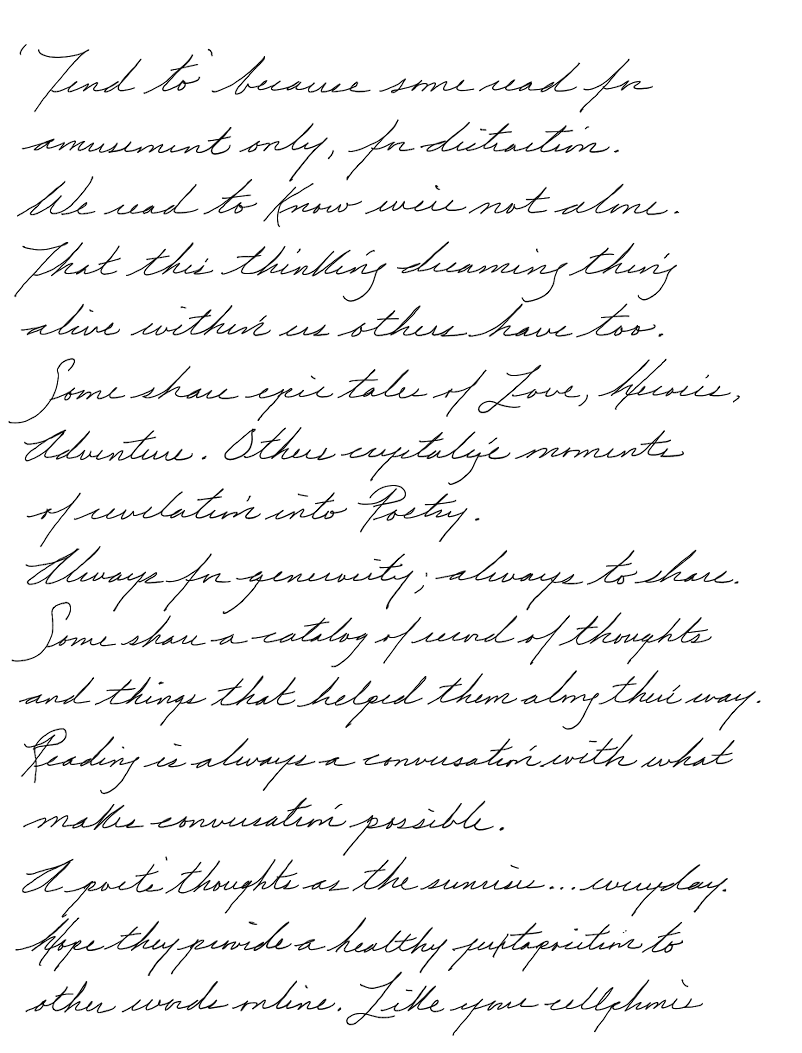 'Tend to' because some read for
amusement only, for distraction.
We read to know we're not alone.
That this thinking dreaming thing
alive within us others have too.
Some share epic tales of Love, Heroics,
Adventure. Others crystalize moments
of revelation into Poetry.
Always for generosity; always to share.
Some share a catalog of record of thoughts
and things that helped them along their way.
Reading is always a conversation with what
makes conversation possible.
A poet's thoughts as the sunrises... everyday.
Hope they provide a healthy juxtaposition to
other words online. Like your cellphone's